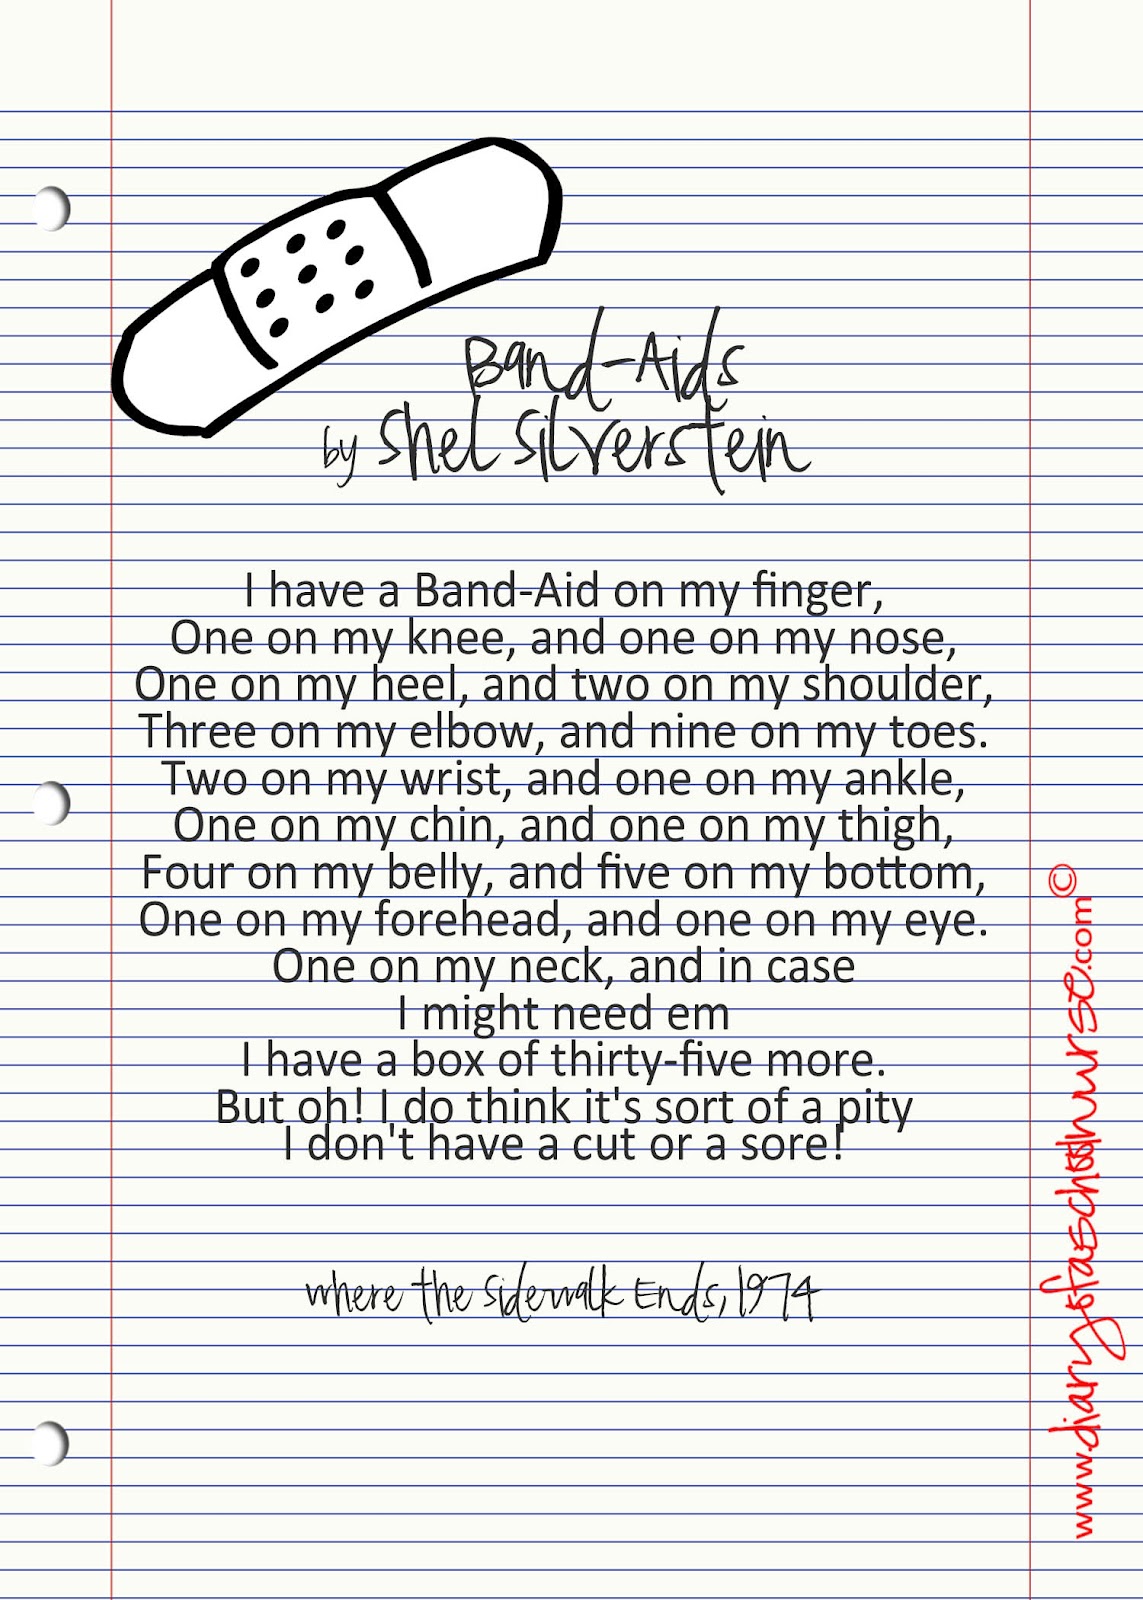 Band-Aids
by Shel Silverstein
I have a Band-Aid on my finger,
One on my knee, and one on my nose,
One on my heel, and two on my shoulder,
Three on my elbow, and nine on my toes.
Two on my wrist, and one on my ankle,
One on my chin, and one on my thigh,
Four on my belly, and five on my bottom,
One on my forehead, and one on my eye.
One on my neck, and in case
I might need em
I have a box of thirty-five more.
But oh! I do think it's sort of a pity
I don't have a cut or a sore!
where the Sidewalk Ends, 1974
www.diaryofaschoolnurse.com©